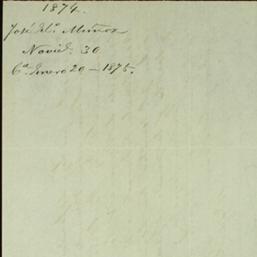 1874.
José M.ª Muñoz
Novie. 30
C.ª Enero 20 — 1875.